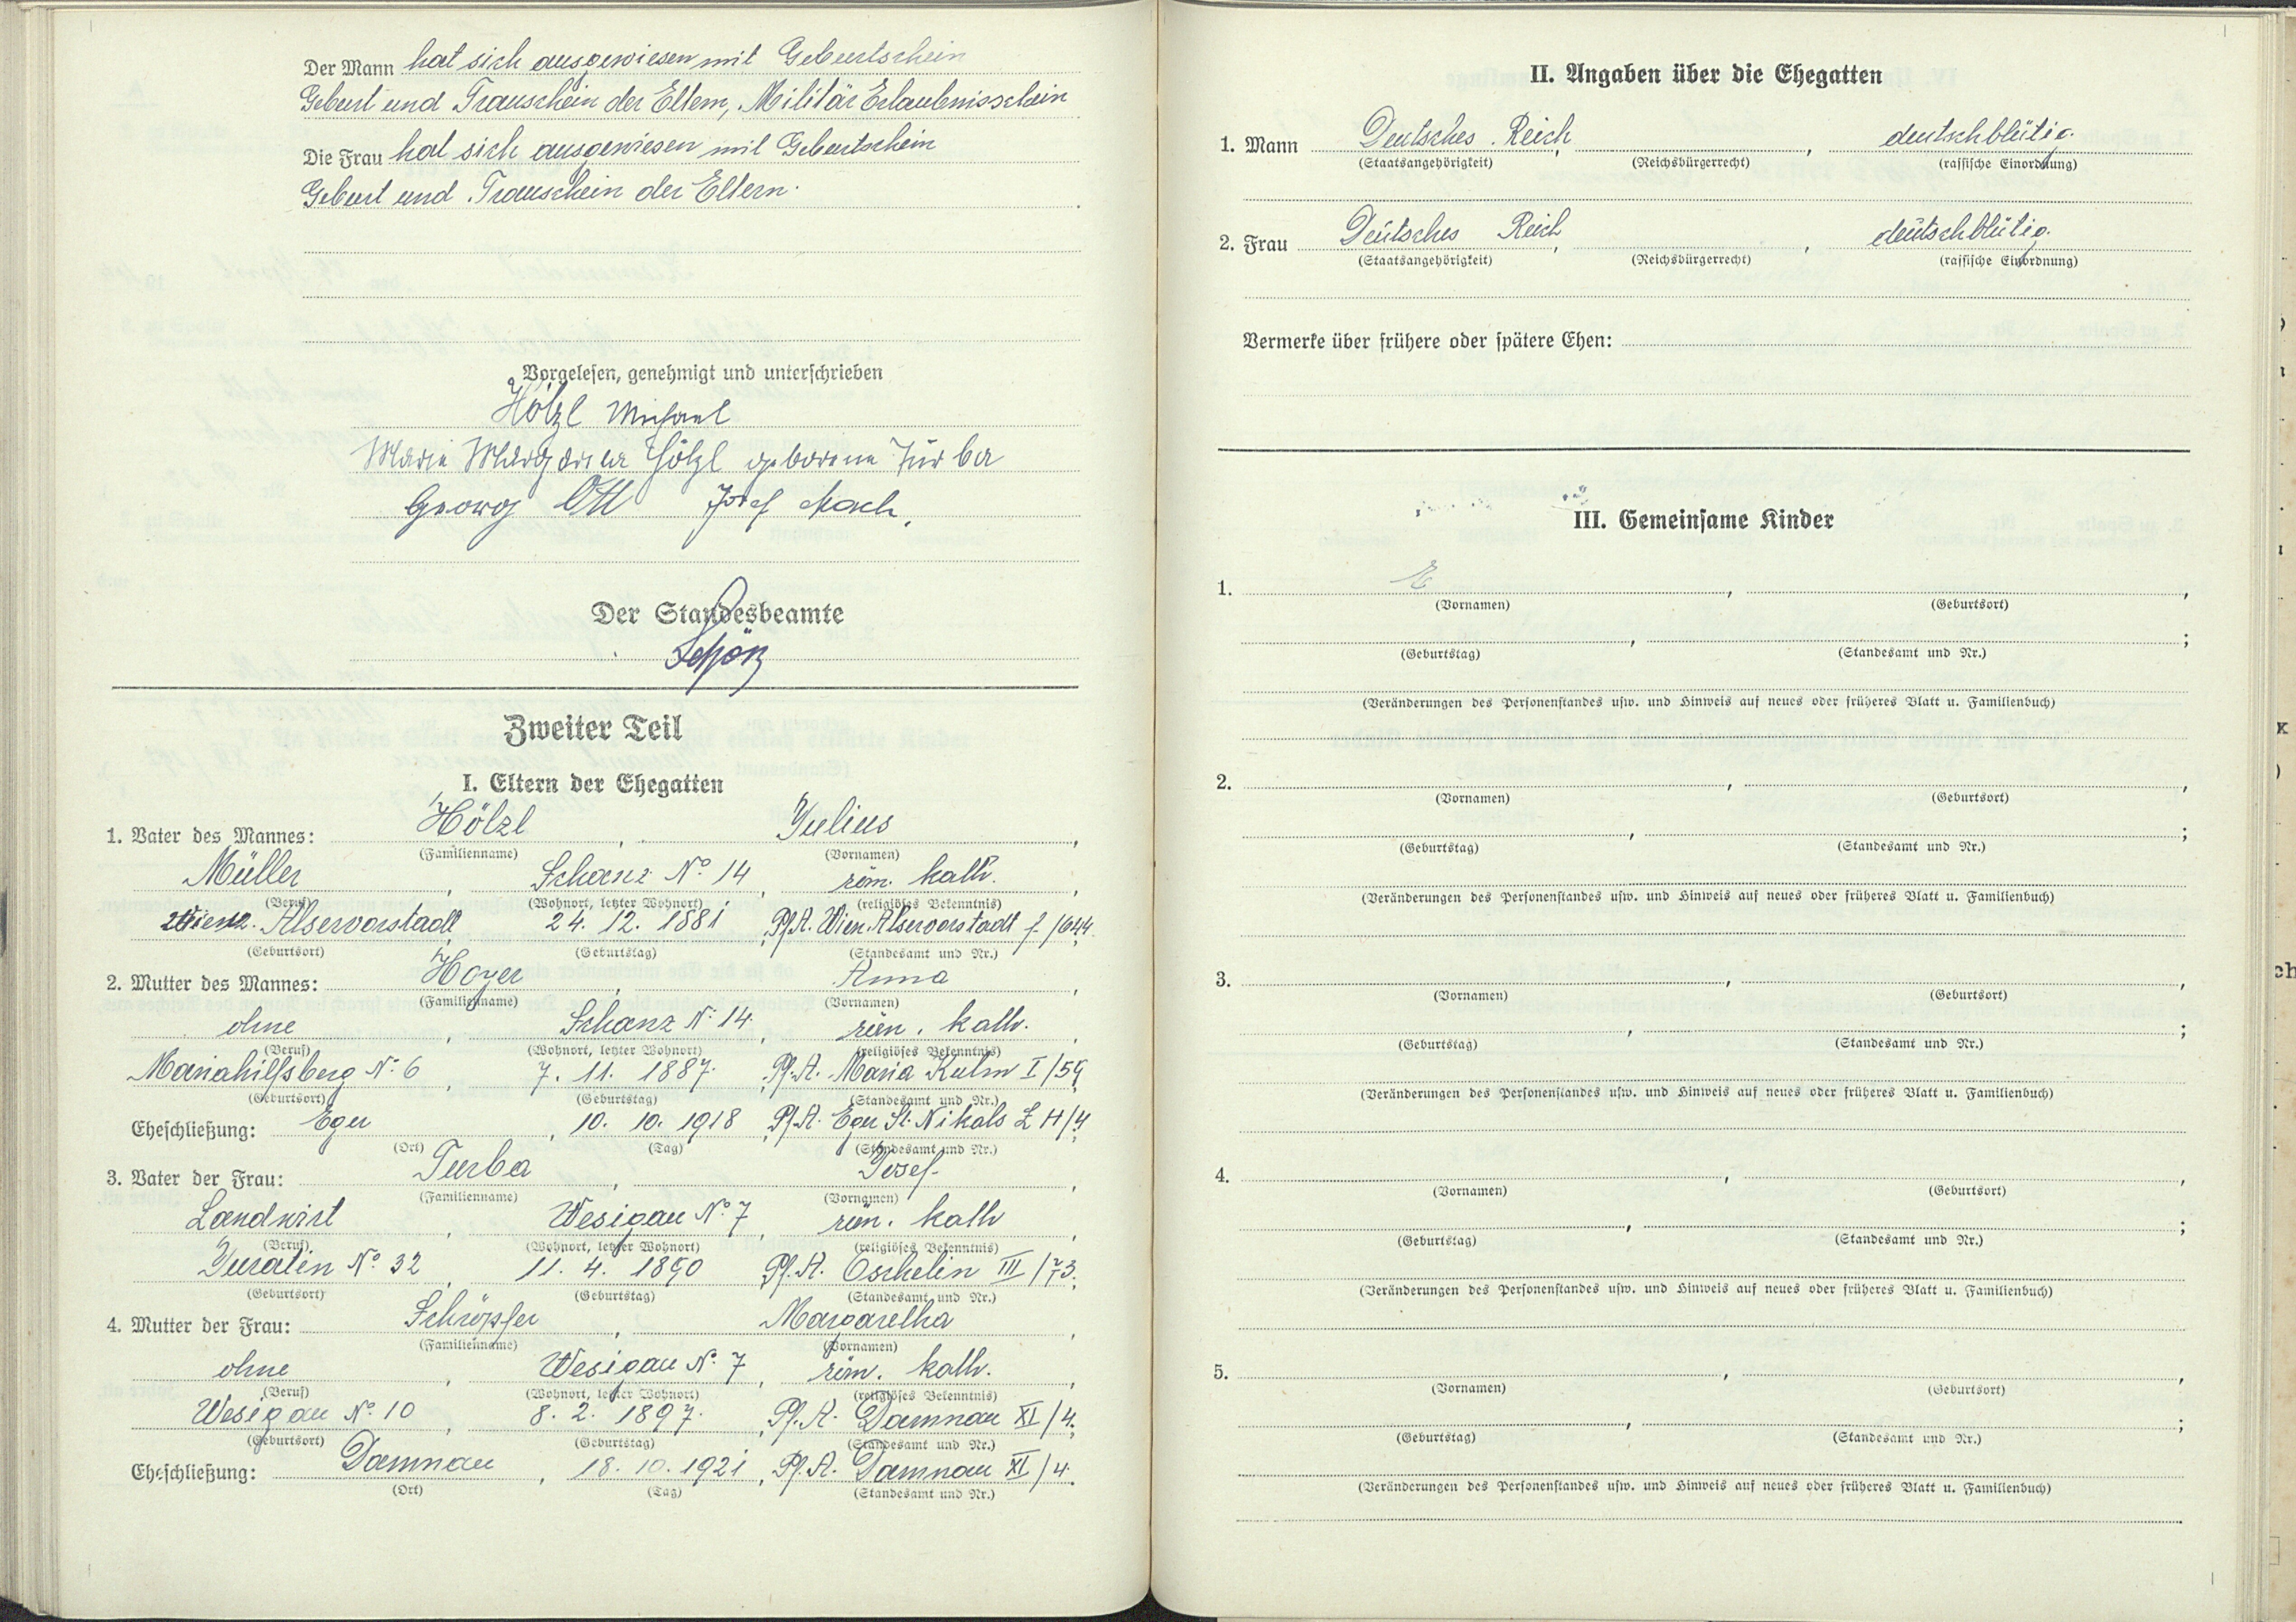 Der Mann hat sich ausgewiesen mit Geburtschein
Geburt und Trauschein der Eltern, Militär Erlaubnisschein
Die Frau hat sich ausgewiesen mit Geburtschein
Geburt und Trauschein der Eltern.
Vorgelesen, genehmigt und unterschrieben
Hölzl Michael
Maria Margareta Hölzl geborene Turba
Georg Ott Josef Mach
Der Standesbeamte
Zweiter Teil
I. Eltern der Ehegatten
1. Vater des Mannes: Hölzl, Julius,
(Familienname) (Vornamen)
Müller, Schanz No 14, röm. kath.,
(Beruf) (Wohnort, letzter Wohnort) (religiöses Bekenntnis)
Alservorstadt, 24. 12. 1881, Pf.A. Wien Alservorstadt f. /644
(Geburtsort) (Geburtstag) (Standesamt und Nr.)
2. Mutter des Mannes: Hoyer, Anna,
(Familienname) (Vornamen)
ohne, Schanz No 14, röm. kath.,
(Beruf) (Wohnort, letzter Wohnort) (religiöses Bekenntnis)
Mariahilfsberg No 6, 7. 11. 1887, Pf.A. Maria Kulm I/59
(Geburtsort) (Geburtstag) (Standesamt und Nr.)
Eheschließung: Eger, 10. 10. 1918, Pf.A. Eger St. Nikols
(Ort) (Tag) (Standesamt und Nr.)
3. Vater der Frau: Turba, Josef,
(Familienname) (Vornamen)
Landwirt, Wesigau No 7, röm. kath,
(Beruf) (Wohnort, letzter Wohnort) (religiöses Bekenntnis)
Juratin No 32, 11. 4. 1890 Pf.A. Oschelin III/73.
(Geburtsort) (Geburtstag) (Standesamt und Nr.)
4. Mutter der Frau: Schröpfer, Margaretha,
(Familienname) (Vornamen)
ohne, Wesigau No 7, röm. kath.,
(Beruf) (Wohnort, letzter Wohnort) (religiöses Bekenntnis)
Wesigau No 10, 8. 2. 1897., Pf.A. Damnau XI/4.
(Geburtsort) (Geburtstag) (Standesamt und Nr.)
Eheschließung: Damnau, 18. 10. 1921, Pf.A. Damnau XI/4.
(Ort) (Tag) (Standesamt und Nr.)
II. Angaben über die Ehegatten
1. Mann Deutsches Reich, , deutschblütig.
(Staatsangehörigkeit) (Reichsbürgerrecht) (rassische Einordnung)
2. Frau Deutsches Reich, , deutschblütig.
(Staatsangehörigkeit) (Reichsbürgerrecht) (rassische Einordnung)
Vermerke über frühere oder spätere Ehen:
III. Gemeinsame Kinder
1. , ,
(Vornamen) (Geburtsort)
, ;
(Geburtstag) (Standesamt und Nr.)
(Veränderungen des Personenstandes usw. und Hinweis auf neues oder früheres Blatt u. Familienbuch)
2. , ,
(Vornamen) (Geburtsort)
, ;
(Geburtstag) (Standesamt und Nr.)
(Veränderungen des Personenstandes usw. und Hinweis auf neues oder früheres Blatt u. Familienbuch)
3. , ,
(Vornamen) (Geburtsort)
, ;
(Geburtstag) (Standesamt und Nr.)
(Veränderungen des Personenstandes usw. und Hinweis auf neues oder früheres Blatt u. Familienbuch)
4. , ,
(Vornamen) (Geburtsort)
, ;
(Geburtstag) (Standesamt und Nr.)
(Veränderungen des Personenstandes usw. und Hinweis auf neues oder früheres Blatt u. Familienbuch)
5. , ,
(Vornamen) (Geburtsort)
, ;
(Geburtstag) (Standesamt und Nr.)
(Veränderungen des Personenstandes usw. und Hinweis auf neues oder früheres Blatt u. Familienbuch)